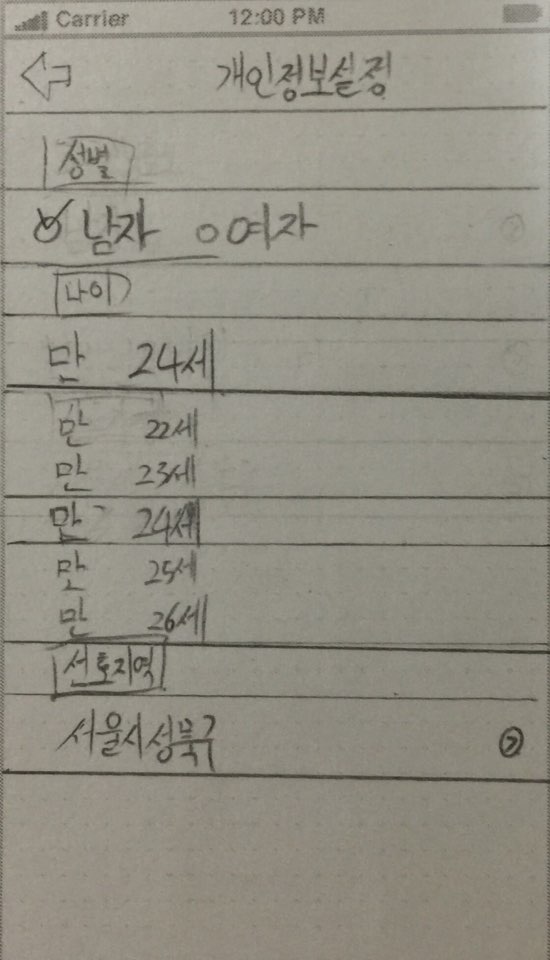 Carrier 12:00 PM
개인정보설정
성별
남자 여자
나이
만 24세
만 22세
만 23세
만 24세
만 25세
만 26세
선호지역
서울시 성북구